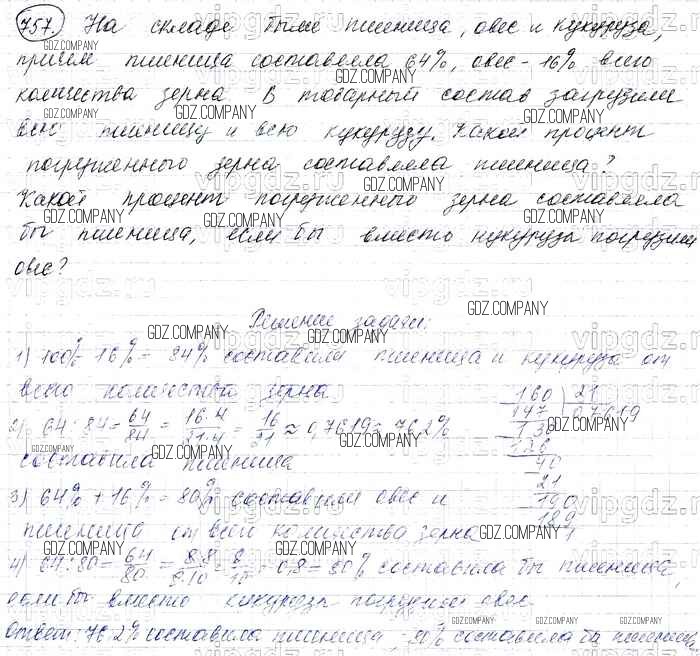 757. На складе были пшеница, овес и кукуруза,
причем пшеница составляла 64%, овес - 16% всего
количества зерна. В товарный состав загрузили
всю пшеницу и всю кукурузу. Какой процент
погруженного зерна составляла пшеница?
Какой процент погруженного зерна составляла
бы пшеница, если бы вместо кукурузы погрузили
овес?
Решение задачи:
1) 100% - 16% = 84% составили пшеница и кукуруза от
всего количества зерна
2) 64 : 84 = 64/84 = 16·4/21·4 = 16/21 ≈ 0,7619 = 76,2%
составила пшеница
160 21
147 0,7619
130
126
40
21
190
189
1
3) 64% + 16% = 80% составили овес и
пшеница от всего количества зерна
4) 64 : 80 = 64/80 = 8·8/8·10 = 8/10 = 0,8 = 80% составила бы пшеница,
если бы вместо кукурузы погрузили овес.
Ответ: 76,2% составила пшеница, 80% составила бы пшеница
GDZ.COMPANY
vipgdz.ru